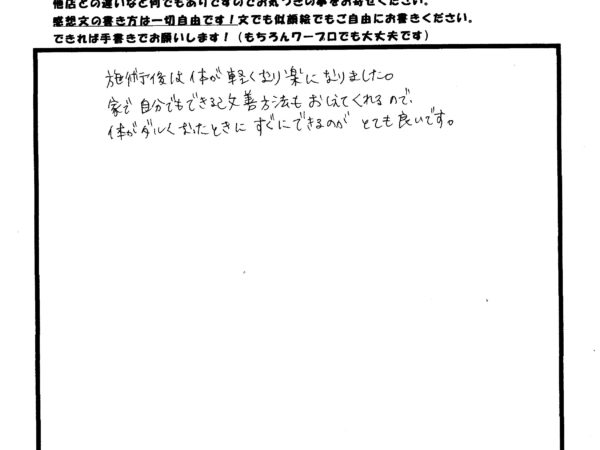 他店との違いなど何でもありですのでお気づきの事をお寄せください。
感想文の書き方は一切自由です！文でも似顔絵でもご自由にお書きください。
できれば手書きでお願いします！（もちろんワープロでも大丈夫です）
施術後は体が軽くなり楽になりました。
家で自分でもできる改善方法もおしえてくれるので、
体がダルくなったときにすぐにできるのがとても良いです。